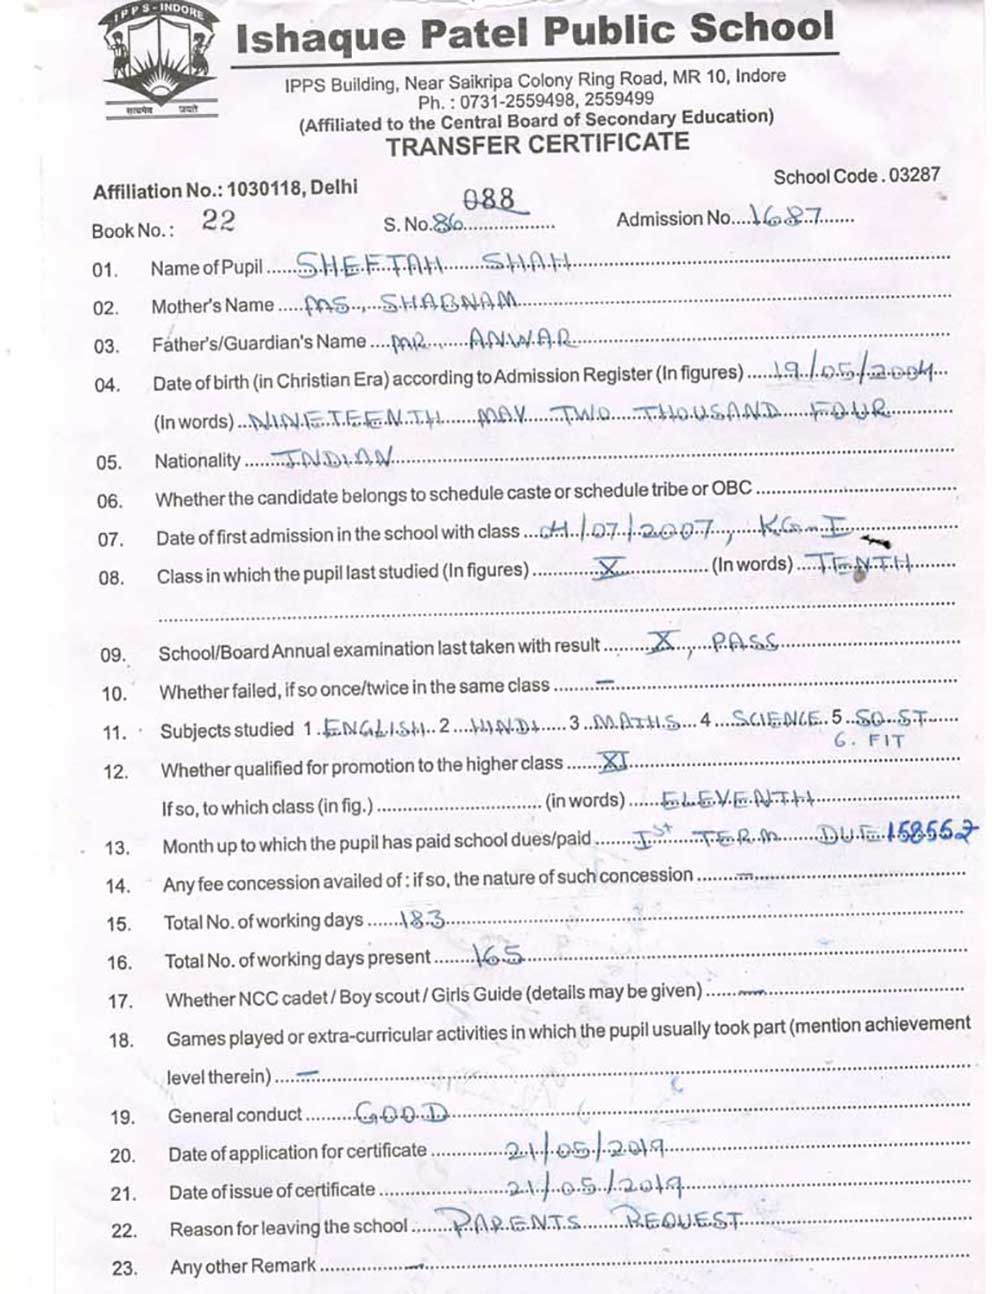 IPPS-INDORE
सत्यमेव जयते
Ishaque Patel Public School
IPPS Building, Near Saikripa Colony Ring Road, MR 10, Indore
Ph. : 0731-2559498, 2559499
(Affiliated to the Central Board of Secondary Education)
TRANSFER CERTIFICATE
Affiliation No.: 1030118, Delhi School Code. 03287
088
Book No.: 22 S. No. 86 Admission No. 1687
01. Name of Pupil SHEFTAH SHAH
02. Mother's Name MS. SHABNAM
03. Father's/Guardian's Name MR. ANWAR
04. Date of birth (in Christian Era) according to Admission Register (In figures) 19/05/2004
(In words) NINETEENTH MAY TWO THOUSAND FOUR
05. Nationality INDIAN
06. Whether the candidate belongs to schedule caste or schedule tribe or OBC
07. Date of first admission in the school with class 01/07/2007, KG-I
08. Class in which the pupil last studied (In figures) X (In words) TENTH
09. School/Board Annual examination last taken with result X, PASS
10. Whether failed, if so once/twice in the same class —
11. Subjects studied 1 ENGLISH 2 HINDI 3 MATHS 4 SCIENCE 5 SO.ST
6. FIT
12. Whether qualified for promotion to the higher class XI
If so, to which class (in fig.) (in words) ELEVENTH
13. Month up to which the pupil has paid school dues/paid Ist TERM DUE 158557
14. Any fee concession availed of : if so, the nature of such concession —
15. Total No. of working days 183
16. Total No. of working days present 165
17. Whether NCC cadet / Boy scout / Girls Guide (details may be given) —
18. Games played or extra-curricular activities in which the pupil usually took part (mention achievement
level therein) —
19. General conduct GOOD
20. Date of application for certificate 21/05/2019
21. Date of issue of certificate 21/05/2019
22. Reason for leaving the school PARENTS REQUEST
23. Any other Remark —